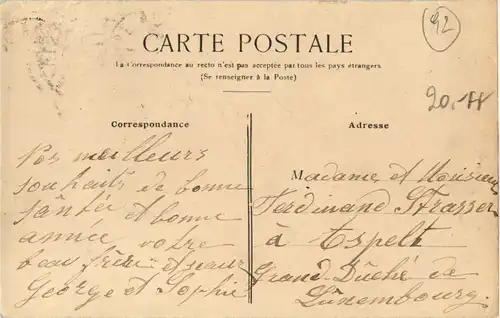 42
CARTE POSTALE
La Correspondance au recto n'est pas acceptée par tous les pays étrangers
(Se renseigner à la Poste)
20.-
Correspondance
Adresse
Nos meilleurs
souhaits de bonne
santée et bonne
année, votre
beau frère et sœur
George et Sophie
Madame et Monsieur
Ferdinand Strasser
à Aspelt
Grand-Duché de
Luxembourg.